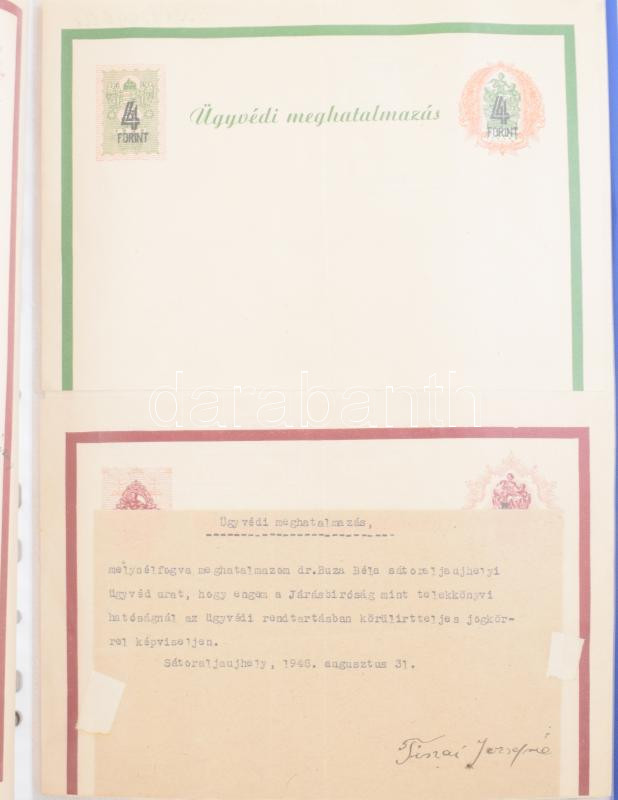 4
FORINT
Ügyvédi meghatalmazás
4
FORINT
darabanth
Ügyvédi meghatalmazás,
melynélfogva meghatalmazom dr.Buza Béla sátoraljaujhelyi
ügyvéd urat, hogy engem a Járásbiróság mint telekkönyvi
hatóságnál az ügyvédi rendtartásban körülirtteljes jogkör-
rel képviseljen.
Sátoraljaujhely, 1946. augusztus 31.
Tiszai Józsefné